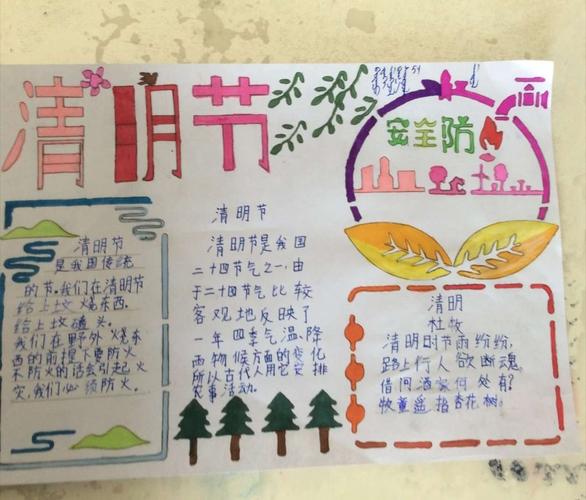 清明节
安全防
清明节
是我国传统
的节.我们在清明节
给上坟烧东西.
给上坟磕头.
我们在野外烧东
西的前提下要防火
不防火的话会引起火
灾.我们必须防火.
清明节
清明节是我国
二十四节气之一,由
于二十四节气比较
客观地反映了
一年四季气温、降
雨物候方面的变化
所以古代人用它安排
农事活动.
清明
杜牧
清明时节雨纷纷,
路上行人欲断魂。
借问酒家何处有?
牧童遥指杏花树。